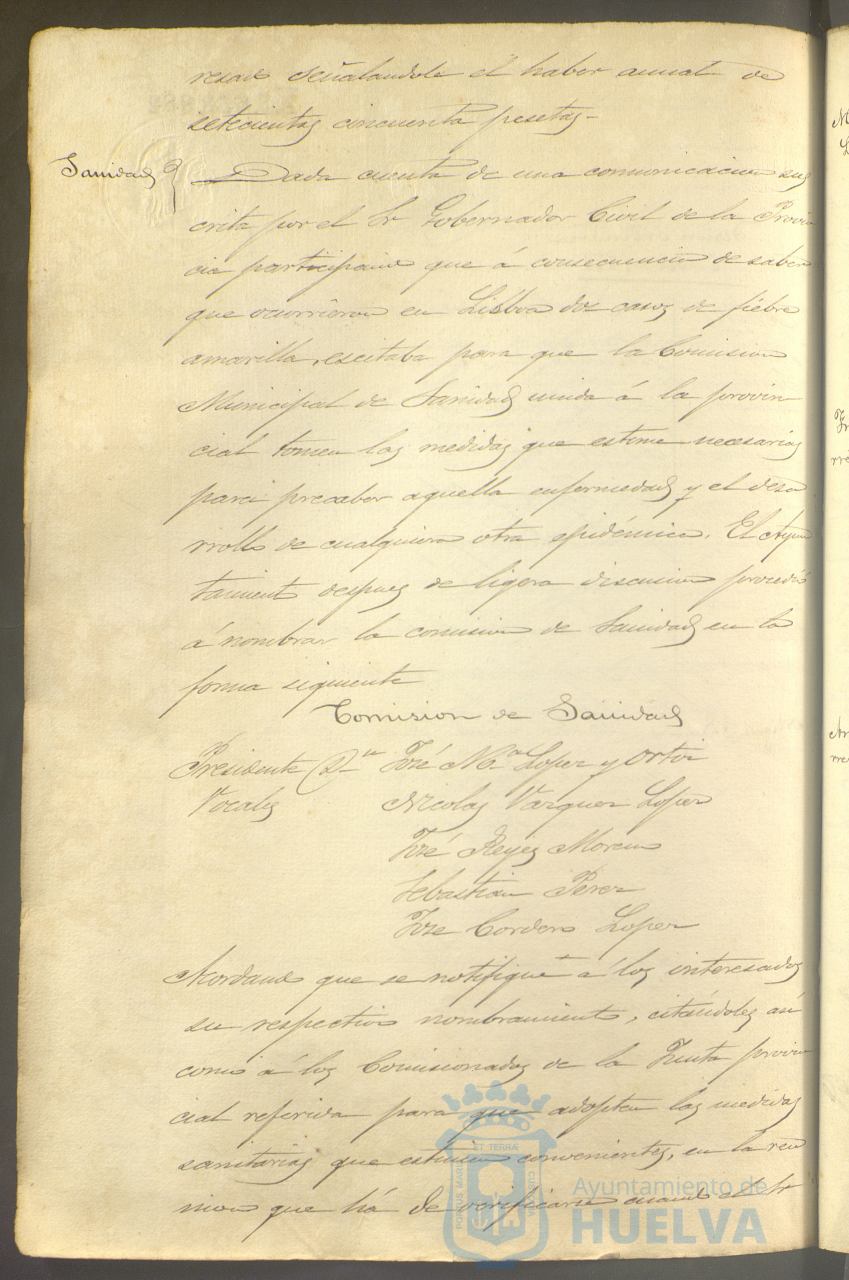 resado señalandole el haber anual de
setecientas cincuenta pesetas-
Sanidad
Dada cuenta de una comunicacion sus
crita por el Sr Gobernador Civil de la Provin
cia participando que á consecuencia de saber
que ocurrieron en Lisboa dos casos de fiebre
amarilla, escitaba para que la Comision
Municipal de Sanidad unida á la provin
cial tomen las medidas que estime necesarias
para precaber aquella enfermedad y el desa
rrollo de cualquiera otra epidémica. El Ayun
tamiento despues de ligera discusion procedió
á nombrar la comision de Sanidad en la
forma siguiente
Comision de Sanidad
Presidente Dn José Ma Lopez y Ortiz
Vocales Nicolas Vazquez Lopez
José Reyes Moreno
Sebastian Perez
Jose Cordero Lopez
Acordando que se notifique á los interesados
su respectivo nombramiento, citándoles asi
como á los Comisionados de la Junta provin
cial referida para que adopten las medidas
sanitarias que estimen convenientes, en la reu
nion que há de verificarse cuando el Sr
Ayuntamiento de
HUELVA